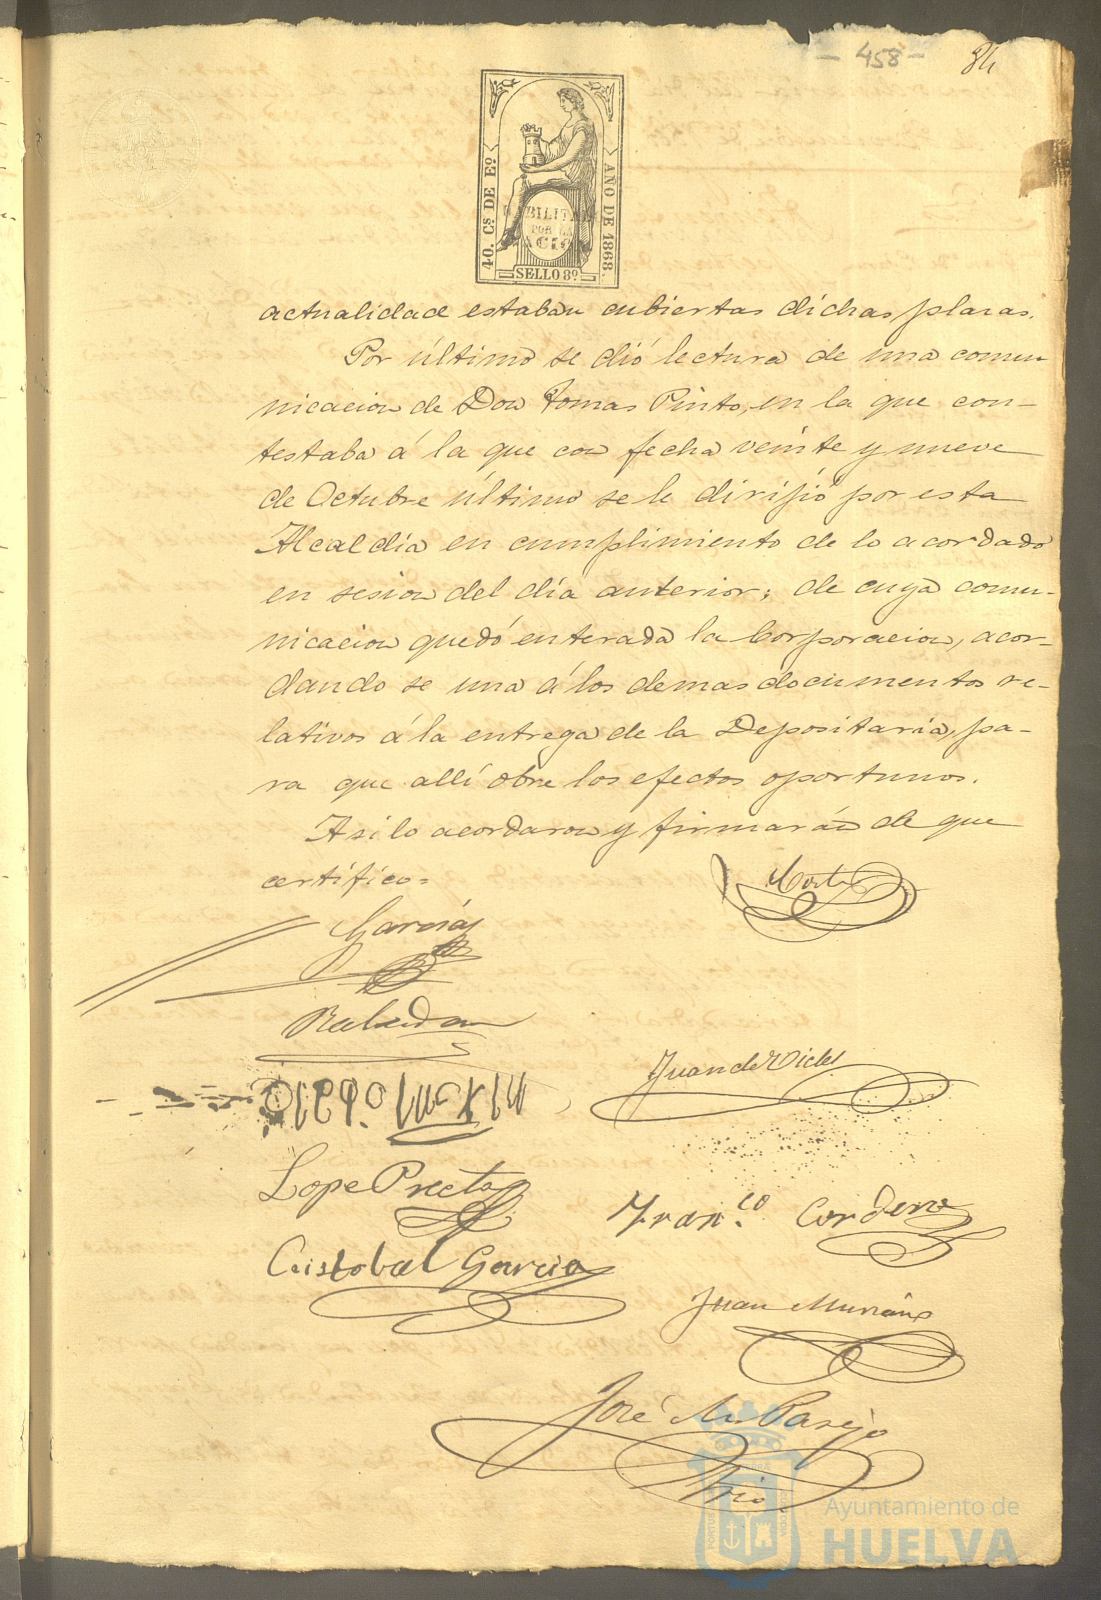 - 458 -
84
40. Cs DE Eo
AÑO DE 1868.
HABILITADO
POR LA
NACION
SELLO 8º
actualidad estaban cubiertas dichas plazas.
Por último se dió lectura de una comu-
nicacion de Don Tomas Pinto, en la que con-
testaba á la que con fecha veinte y nueve
de Octubre último se le dirijió por esta
Alcaldía en cumplimiento de lo acordado
en sesion del día anterior; de cuya comu-
nicacion quedó enterada la Corporacion, acor-
dando se una á los demas documentos re-
lativos á la entrega de la Depositaría, pa-
ra que allí obre los efectos oportunos.
Asi lo acordaron y firmarán de que
certifico=
García
Rabadan
Juan de Vides
Lope Prieto
Franco Cordero
Cristobal Garcia
Juan
José M. Parejo
Srio
Ayuntamiento de
HUELVA